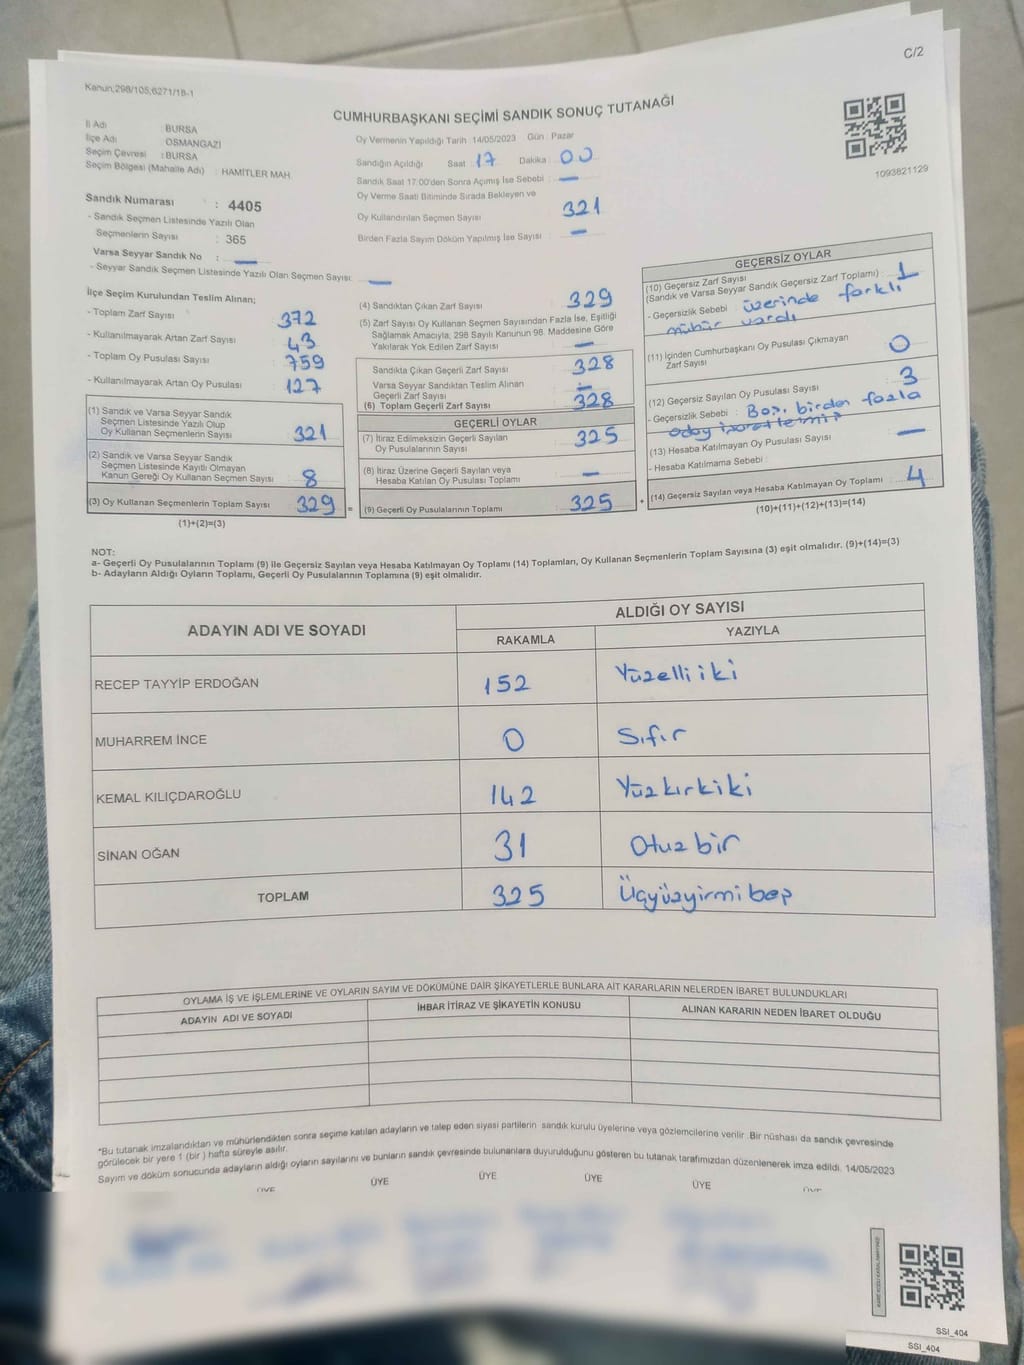 C/2
Kanun;298/105;6271/18-1
CUMHURBAŞKANI SEÇİMİ SANDIK SONUÇ TUTANAĞI
1093821129
İl Adı : BURSA
İlçe Adı : OSMANGAZİ
Seçim Çevresi : BURSA
Seçim Bölgesi (Mahalle Adı) : HAMİTLER MAH.
Sandık Numarası : 4405
- Sandık Seçmen Listesinde Yazılı Olan
Seçmenlerin Sayısı : 365
Varsa Seyyar Sandık No : —
- Seyyar Sandık Seçmen Listesinde Yazılı Olan Seçmen Sayısı: —
Oy Vermenin Yapıldığı Tarih :14/05/2023 Gün : Pazar
Sandığın Açıldığı Saat : 17 Dakika : 00
Sandık Saat 17:00'den Sonra Açımış İse Sebebi : —
Oy Verme Saati Bitiminde Sırada Bekleyen ve
Oy Kullandırılan Seçmen Sayısı : 321
Birden Fazla Sayım Döküm Yapılmış İse Sayısı : —
İlçe Seçim Kurulundan Teslim Alınan;
- Toplam Zarf Sayısı : 372
- Kullanılmayarak Artan Zarf Sayısı : 43
- Toplam Oy Pusulası Sayısı : 759
- Kullanılmayarak Artan Oy Pusulası : 127
(1) Sandık ve Varsa Seyyar Sandık
Seçmen Listesinde Yazılı Olup
Oy Kullanan Seçmenlerin Sayısı : 321
(2) Sandık ve Varsa Seyyar Sandık
Seçmen Listesinde Kayıtlı Olmayan
Kanun Gereği Oy Kullanan Seçmen Sayısı : 8
(3) Oy Kullanan Seçmenlerin Toplam Sayısı : 329 =
(1)+(2)=(3)
(4) Sandıktan Çıkan Zarf Sayısı : 329
(5) Zarf Sayısı Oy Kullanan Seçmen Sayısından Fazla İse, Eşitliği
Sağlamak Amacıyla, 298 Sayılı Kanunun 98. Maddesine Göre
Yakılarak Yok Edilen Zarf Sayısı : —
Sandıkta Çıkan Geçerli Zarf Sayısı : 328
Varsa Seyyar Sandıktan Teslim Alınan
Geçerli Zarf Sayısı : —
(6) Toplam Geçerli Zarf Sayısı : 328
GEÇERLİ OYLAR
(7) İtiraz Edilmeksizin Geçerli Sayılan
Oy Pusulalarının Sayısı : 325
(8) İtiraz Üzerine Geçerli Sayılan veya
Hesaba Katılan Oy Pusulası Toplamı : —
(9) Geçerli Oy Pusulalarının Toplamı : 325 +
GEÇERSİZ OYLAR
(10) Geçersiz Zarf Sayısı
(Sandık ve Varsa Seyyar Sandık Geçersiz Zarf Toplamı) : 1
- Geçersizlik Sebebi : üzerinde farklı
mühür vardı
(11) İçinden Cumhurbaşkanı Oy Pusulası Çıkmayan
Zarf Sayısı : 0
(12) Geçersiz Sayılan Oy Pusulası Sayısı : 3
- Geçersizlik Sebebi : Boş, birden fazla
aday işaretlemiş
(13) Hesaba Katılmayan Oy Pusulası Sayısı : —
- Hesaba Katılmama Sebebi :
(14) Geçersiz Sayılan veya Hesaba Katılmayan Oy Toplamı : 4
(10)+(11)+(12)+(13)=(14)
NOT:
a- Geçerli Oy Pusulalarının Toplamı (9) ile Geçersiz Sayılan veya Hesaba Katılmayan Oy Toplamı (14) Toplamları, Oy Kullanan Seçmenlerin Toplam Sayısına (3) eşit olmalıdır. (9)+(14)=(3)
b- Adayların Aldığı Oyların Toplamı, Geçerli Oy Pusulalarının Toplamına (9) eşit olmalıdır.
ADAYIN ADI VE SOYADI ALDIĞI OY SAYISI
RAKAMLA YAZIYLA
RECEP TAYYİP ERDOĞAN 152 Yüzelliiki
MUHARREM İNCE 0 Sıfır
KEMAL KILIÇDAROĞLU 142 Yüzkırkiki
SİNAN OĞAN 31 Otuzbir
TOPLAM 325 Üçyüzyirmibeş
OYLAMA İŞ VE İŞLEMLERİNE VE OYLARIN SAYIM VE DÖKÜMÜNE DAİR ŞİKAYETLERLE BUNLARA AİT KARARLARIN NELERDEN İBARET BULUNDUKLARI
ADAYIN ADI VE SOYADI İHBAR İTİRAZ VE ŞİKAYETİN KONUSU ALINAN KARARIN NEDEN İBARET OLDUĞU
*Bu tutanak imzalandıktan ve mühürlendikten sonra seçime katılan adayların ve talep eden siyasi partilerin sandık kurulu üyelerine veya gözlemcilerine verilir. Bir nüshası da sandık çevresinde
görülecek bir yere 1 (bir ) hafta süreyle asılır.
Sayım ve döküm sonucunda adayların aldığı oyların sayılarını ve bunların sandık çevresinde bulunanlara duyurulduğunu gösteren bu tutanak tarafımızdan düzenlenerek imza edildi. 14/05/2023
ÜYE ÜYE ÜYE ÜYE ÜYE ÜYE
SSI_404
SSI_404